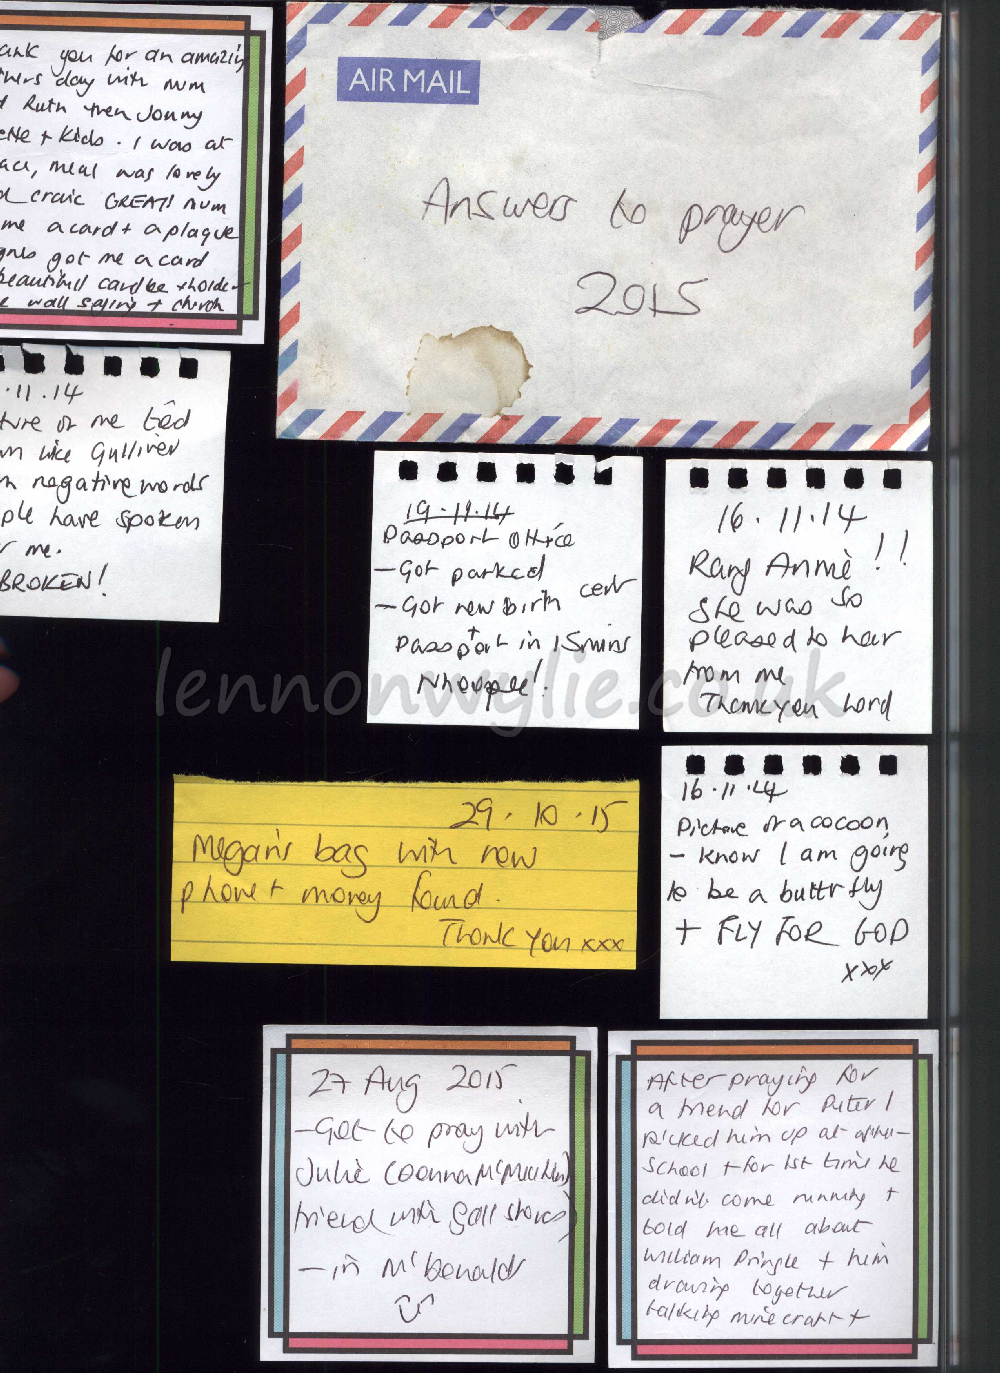 ank you for an amazing
thers day with mum
d Ruth then Jonny
ette + kids. I was at
ace, meal was lovely
d craic GREAT! mum
me a card + a plaque
got me a card
beautiful candle holder
e wall saying + church
AIR MAIL
Answers to prayer
2015
.11.14
ture of me tied
wn like Gulliver
m negative words
ple have spoken
r me.
BROKEN!
19.11.14
Passport Office
- Got parked
- Got new birth cert
+
Passport in 15mins
Whooppee!
16.11.14
Rang Annie!!
She was so
pleased to hear
from me
Thankyou Lord
lennonwylie.co.uk
29.10.15
Megan's bag with new
phone + money found.
Thank you xxx
16.11.14
Picture of a cocoon
- know I am going
to be a buttrfly
+ FLY FOR GOD
xxx
27 Aug 2015
- Got to pray with
Julie (Donna McMullan)
friend with gall stones)
- in McDonalds
After praying for
a friend for Peter I
picked him up at after-
school + for 1st time he
didn't come running +
told me all about
William Pringle + him
drawing together
talking minecraft +